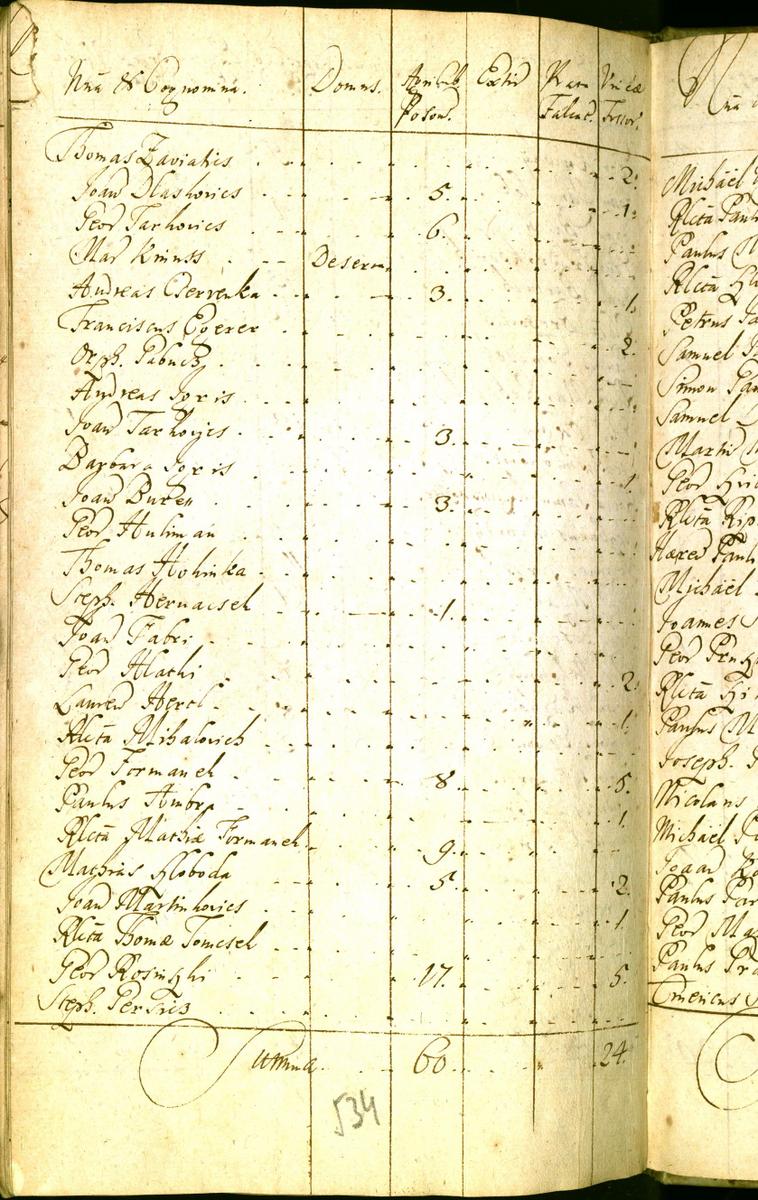 Nna & Cognomina. Domus. Agri Cub. Poson. Extir Prata Falcat. Vineæ Fossor.
Thomas Zaviatis 2.
Joan Dlashovics 5. 1.
Geor Tarkovics 6.
Mar Kmuss Deserta
Andreas Cservenka 3. 1.
Franciscus Egerer 2.
Orph. Pabuch
Andreas Joris
Joan Tarkovics 3.
Barbara Joris 1.
Joan Bures 3.
Geor Huliman
Thomas Holinka
Steph. Hernaisel 1.
Joan Fabri
Geor Hlachi 2.
Laured Hertl 1.
Rlcta Mihalovich
Geor Formanek 8. 5.
Paulus Ambra 1.
Rlcta Mathiæ Formanek 9.
Mathias Sloboda 5. 2.
Joan Martinkovics 1.
Rlcta Thomæ Tomesel
Geor Rosinszki 17. 5.
Steph. Pertris
Summa 60. 24.
534
Michaël
Rlcta Paul
Paulus
Rlcta
Petrus
Samuel
Simon
Samuel
Martin
Geor
Rlcta
Paul
Michaël
Joannes
Geor
Rlcta
Paulus
Joseph.
Nicolaus
Michaël
Joan
Paulus
Geor
Paulus
Emericus